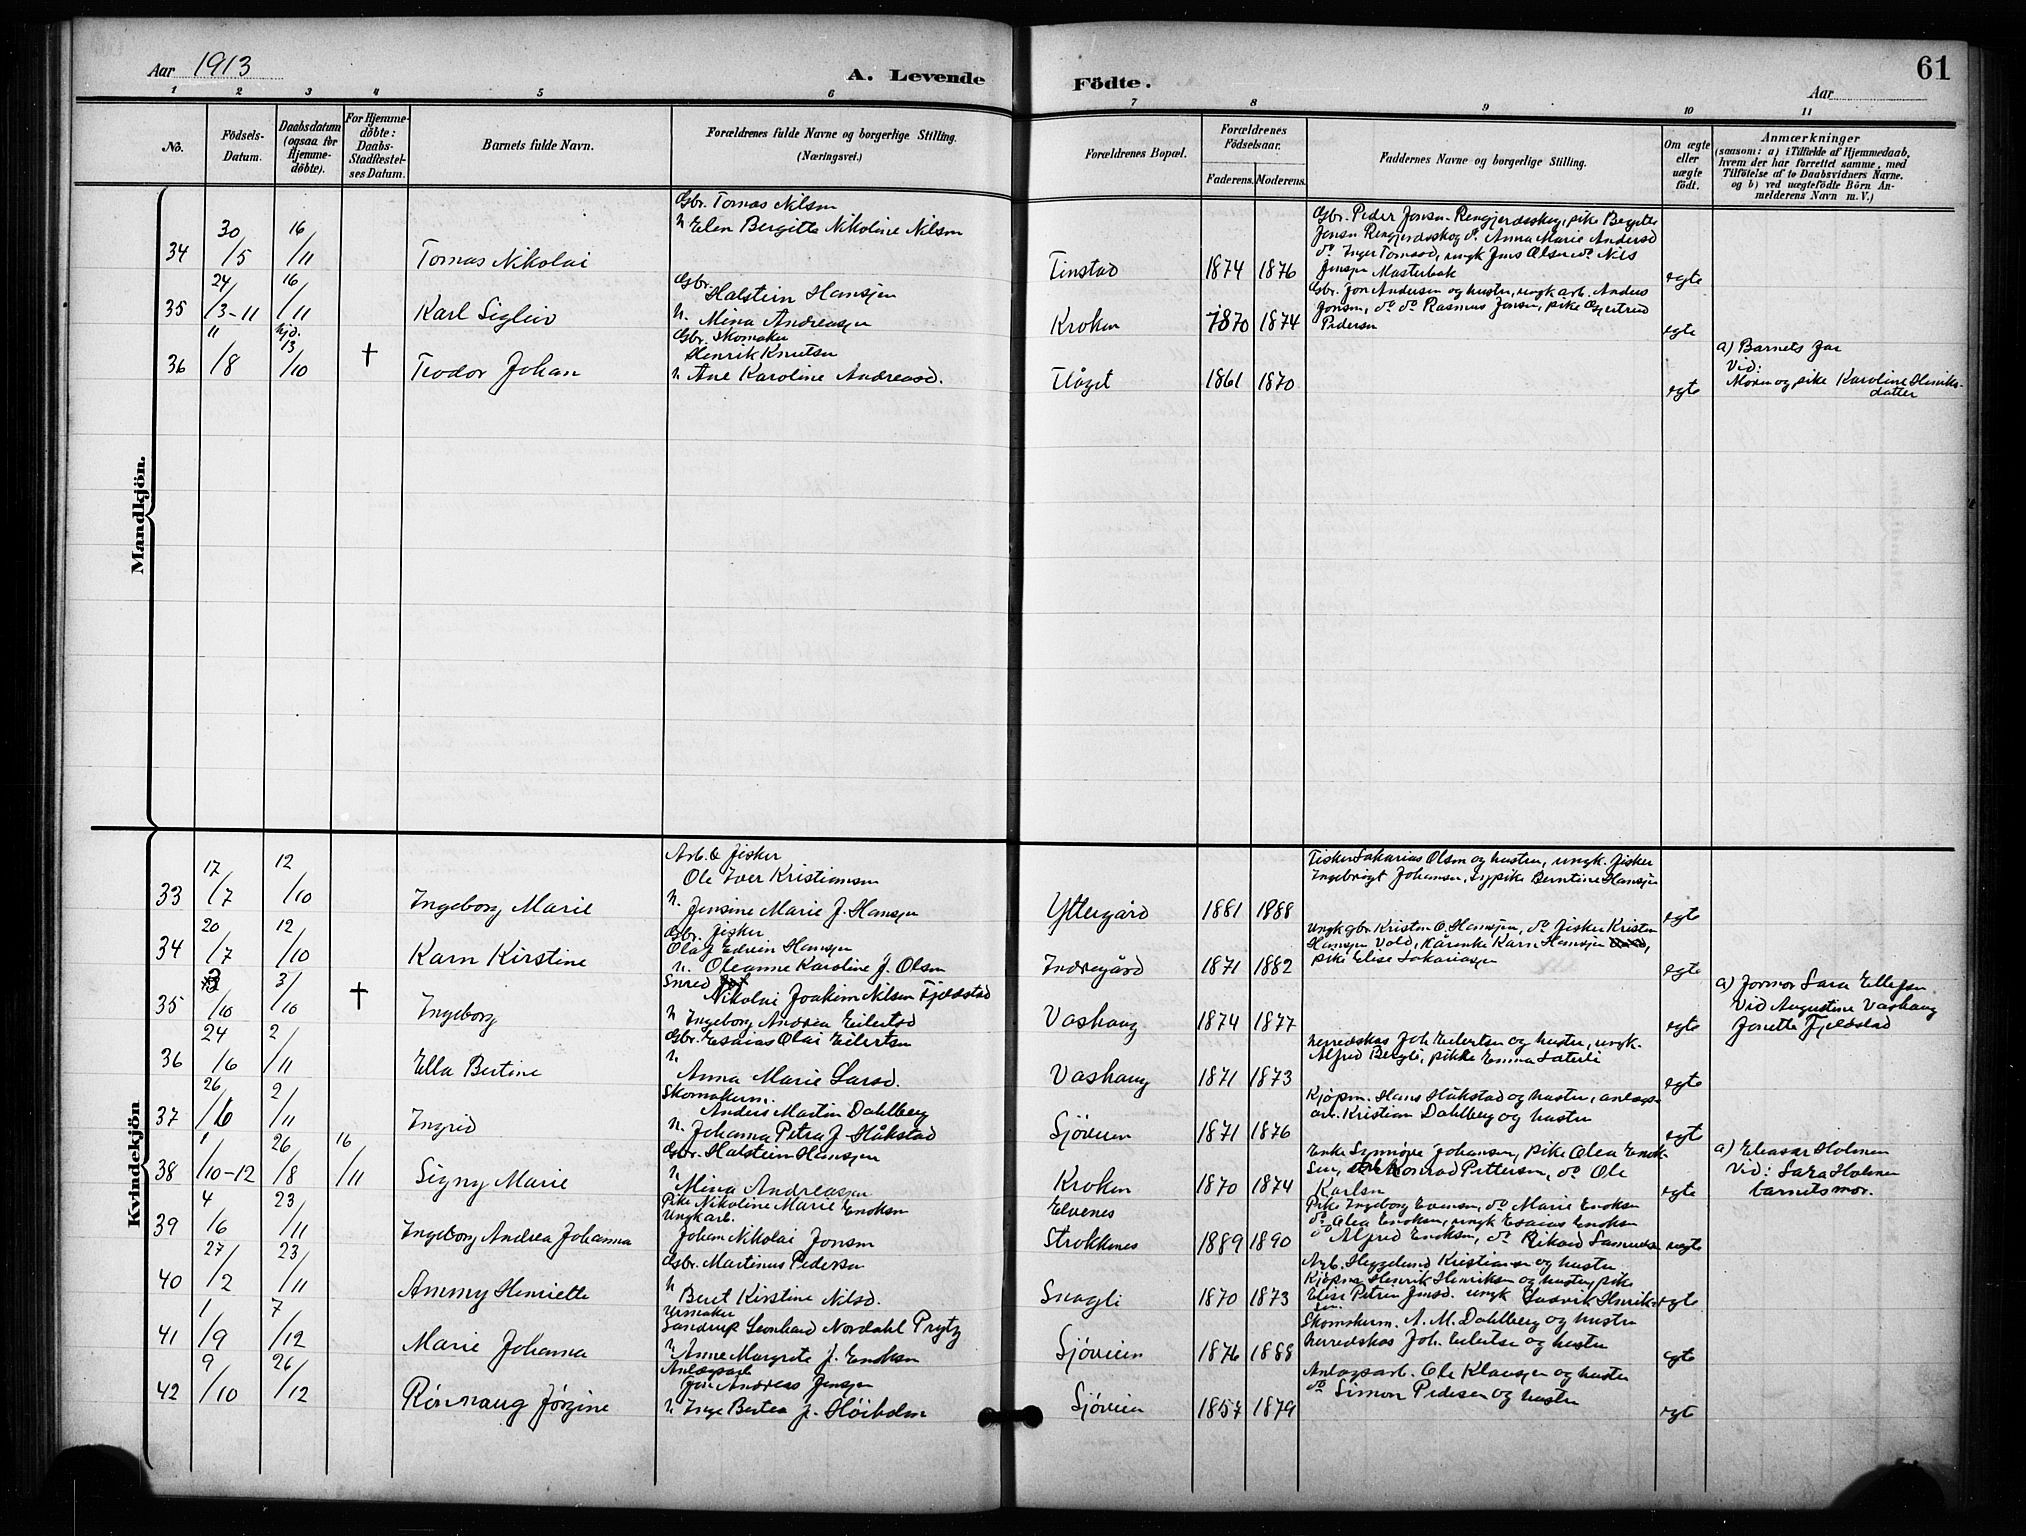 Aar 1913
A. Levende
Födte.
61
Aar
1 2 3 4 5 6 7 8 9 10 11
No.
Födsels-Datum.
Daabsdatum (ogsaa for Hjemme-döbte).
For Hjemme-döbte: Daabs-Stadfestel-ses Datum.
Barnets fulde Navn.
Forældrenes fulde Navne og borgerlige Stilling.
(Næringsvei.)
Forældrenes Bopæl.
Forældrenes Födselsaar.
Faderens. Moderens.
Faddernes Navne og borgerlige Stilling.
Om ægte eller uægte födt.
Anmærkninger
(saasom: a) i Tilfælde af Hjemmedaab, hvem der har forrettet samme, med Tilföielse af to Daabsvidners Navne. og b) ved uægtefödte Börn An-melderens Navn m. V.)
Mandkjön.
34 30/5 16/11 Tomas Nikolai
Gbr. Tomas Nilsen
h Elen Bergitte Nikoline Nilsen
Finstad 1874 1876
Gbr. Peder Jensen Rengjerdsskog, pike Bergitte
Jensen Rengjerdsskog do Anna Marie Andersd
do Inger Tomasd, ungk Jens Olsen do Nils
Jensen Masterbak
egte
35 24/3-11 16/11 Karl Sigleiv
Gbr.
Halstein Hansen
h. Mina Andreassen
Kroken 1870 1874
Gbr. Jon Andersen og hustru, ungk arb. Anders
Jonsen, do do Rasmus Jensen, pike Gjertrud
Pedersen
egte
36 11/8 hjd. 13/10 † Teodor Johan
Gbr. Skomaker
Henrik Knutsen
h. Ane Karoline Andreasd.
Flåget 1861 1870
egte
a) Barnets far
Vid:
Moren og pike Karoline Henriks-
datter
Kvindekjön
33 17/7 12/10 Ingeborg Marie
Arb. & fisker
Ole Iver Kristiansen
h. Jensine Marie J. Hansen
Yttergård 1881 1888
Fisker Sakarias Olsen og hustru, ungk. fisker
Ingebrigt Johansen, sypike Berntine Hansen
egte
34 20/7 12/10 Karn Kirstine
Gbr. fisker
Olaf Edvin Hansen
h. Oleanne Karoline J. Olsen
Indregård 1871 1882
Ungk gbr Kristen O. Hansen, do fisker Kristen
Hansen Vold, Karn Hansen
pike Elise Sakariassen
egte
35 /10 3/10 † Ingeborg
Snred
Nikolai Joakim Nilsen Fjeldstad
h Ingeborg Andrea Eilertsd
Vashaug 1874 1877
egte
a) Formor Sara Ellefsen
Vid Augustine Vashaug
Jonette Fjeldstad
36 24/6 2/11 Ella Bertine
Gbr. Esaias Olai Eilertsen
h
Anna Marie Larsd.
Vashaug 1871 1873
Herredskas Joh. Eilertsen og hustru, ungk.
Alfred Bergli, pike Emma Sæterli
egte
37 26/6 2/11 Ingrid
Skomakerm.
Anders Martin Dahlberg
h. Johanna Petra J. Håkstad
Sjøveien 1871 1876
Kjøpm. Hans Håkstad og hustru, anlægs-
arb. Kristian Dahlberg og hustru
egte
38 1/10-12 26/8 16/11 Signy Marie
Gbr. Halstein Hansen
h
Mina Andreassen
Kroken 1870 1874
Enke Synnøve Johansen, pike Olea Enok-
sen, Konrad Pettersen, do Ole
Karlsen
egte
a) Eleasar Holmen
Vid: Sara Holmen
barnets mor.
39 4/6 23/11 Ingeborg Andrea Johanna
Pike Nikoline Marie Enoksen
Ungk arb.
Johan Nikolai Jonsen
Elvenes
Strokkenes 1889 1890
Pike Ingeborg Evensen, do Marie Enoksen
do Olea Enoksen, ungk Esaias Enoksen
do Alfred Enoksen, do Rikard Samuelsen
uegte
40 27/2 23/11 Ammy Henriette
Gbr. Martinus Pedersen
h
Beret Kirstine Nilsd.
Snogli 1870 1873
Arb. Heggelund Kristiansen og hustru
Kjøpm Henrik Henriksen og hustru, pike
Elise Petrea Jensd. ungk Ludvik Henrik-
sen.
egte
41 1/9 7/12 Marie Johanna
Urmaker
Sandrup Leonhard Nordahl Prytz
h Anne Margrete J. Enoksen
Sjøveien 1876 1888
Skomakerm. A. M. Dahlberg og hustru
Herredskas Joh. Eilertsen og hustru
egte
42 9/10 26/12 Rønnaug Jørgine
Anlægsarb
Andreas Jensen
h Inga Bertea J. Høiholm
Sjøveien 1857 1879
Anlægsarb. Ole Klausen og hustru
do Simon Pedersen og hustru
egte